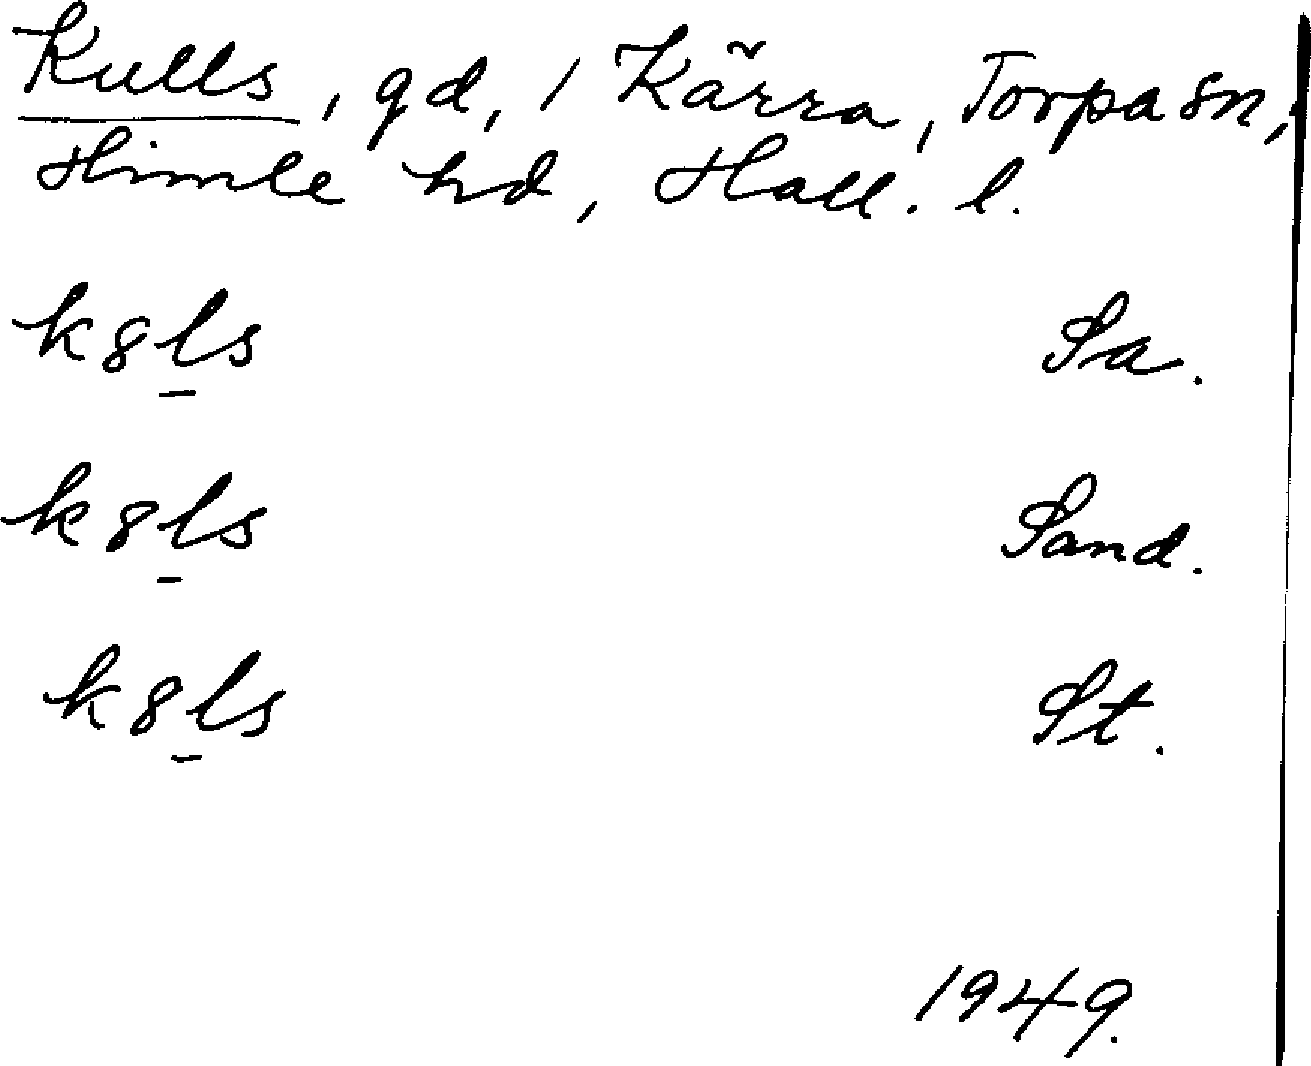 Kulls, gd, 1 Kärra, Torpa sn,
Himle hd, Hall. l.
k8l̲s Sa.
k8l̲s Sand.
k8l̲s St.
1949.